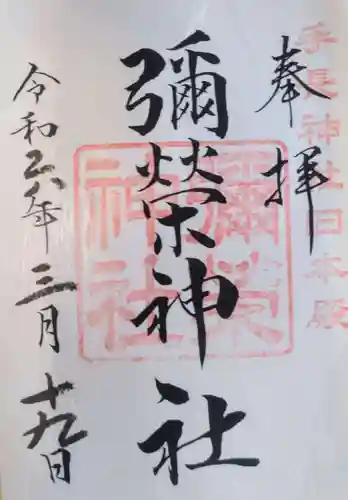 手長神社旧本殿
奉拝
彌榮神社
彌榮
神社
令和六年三月十九日